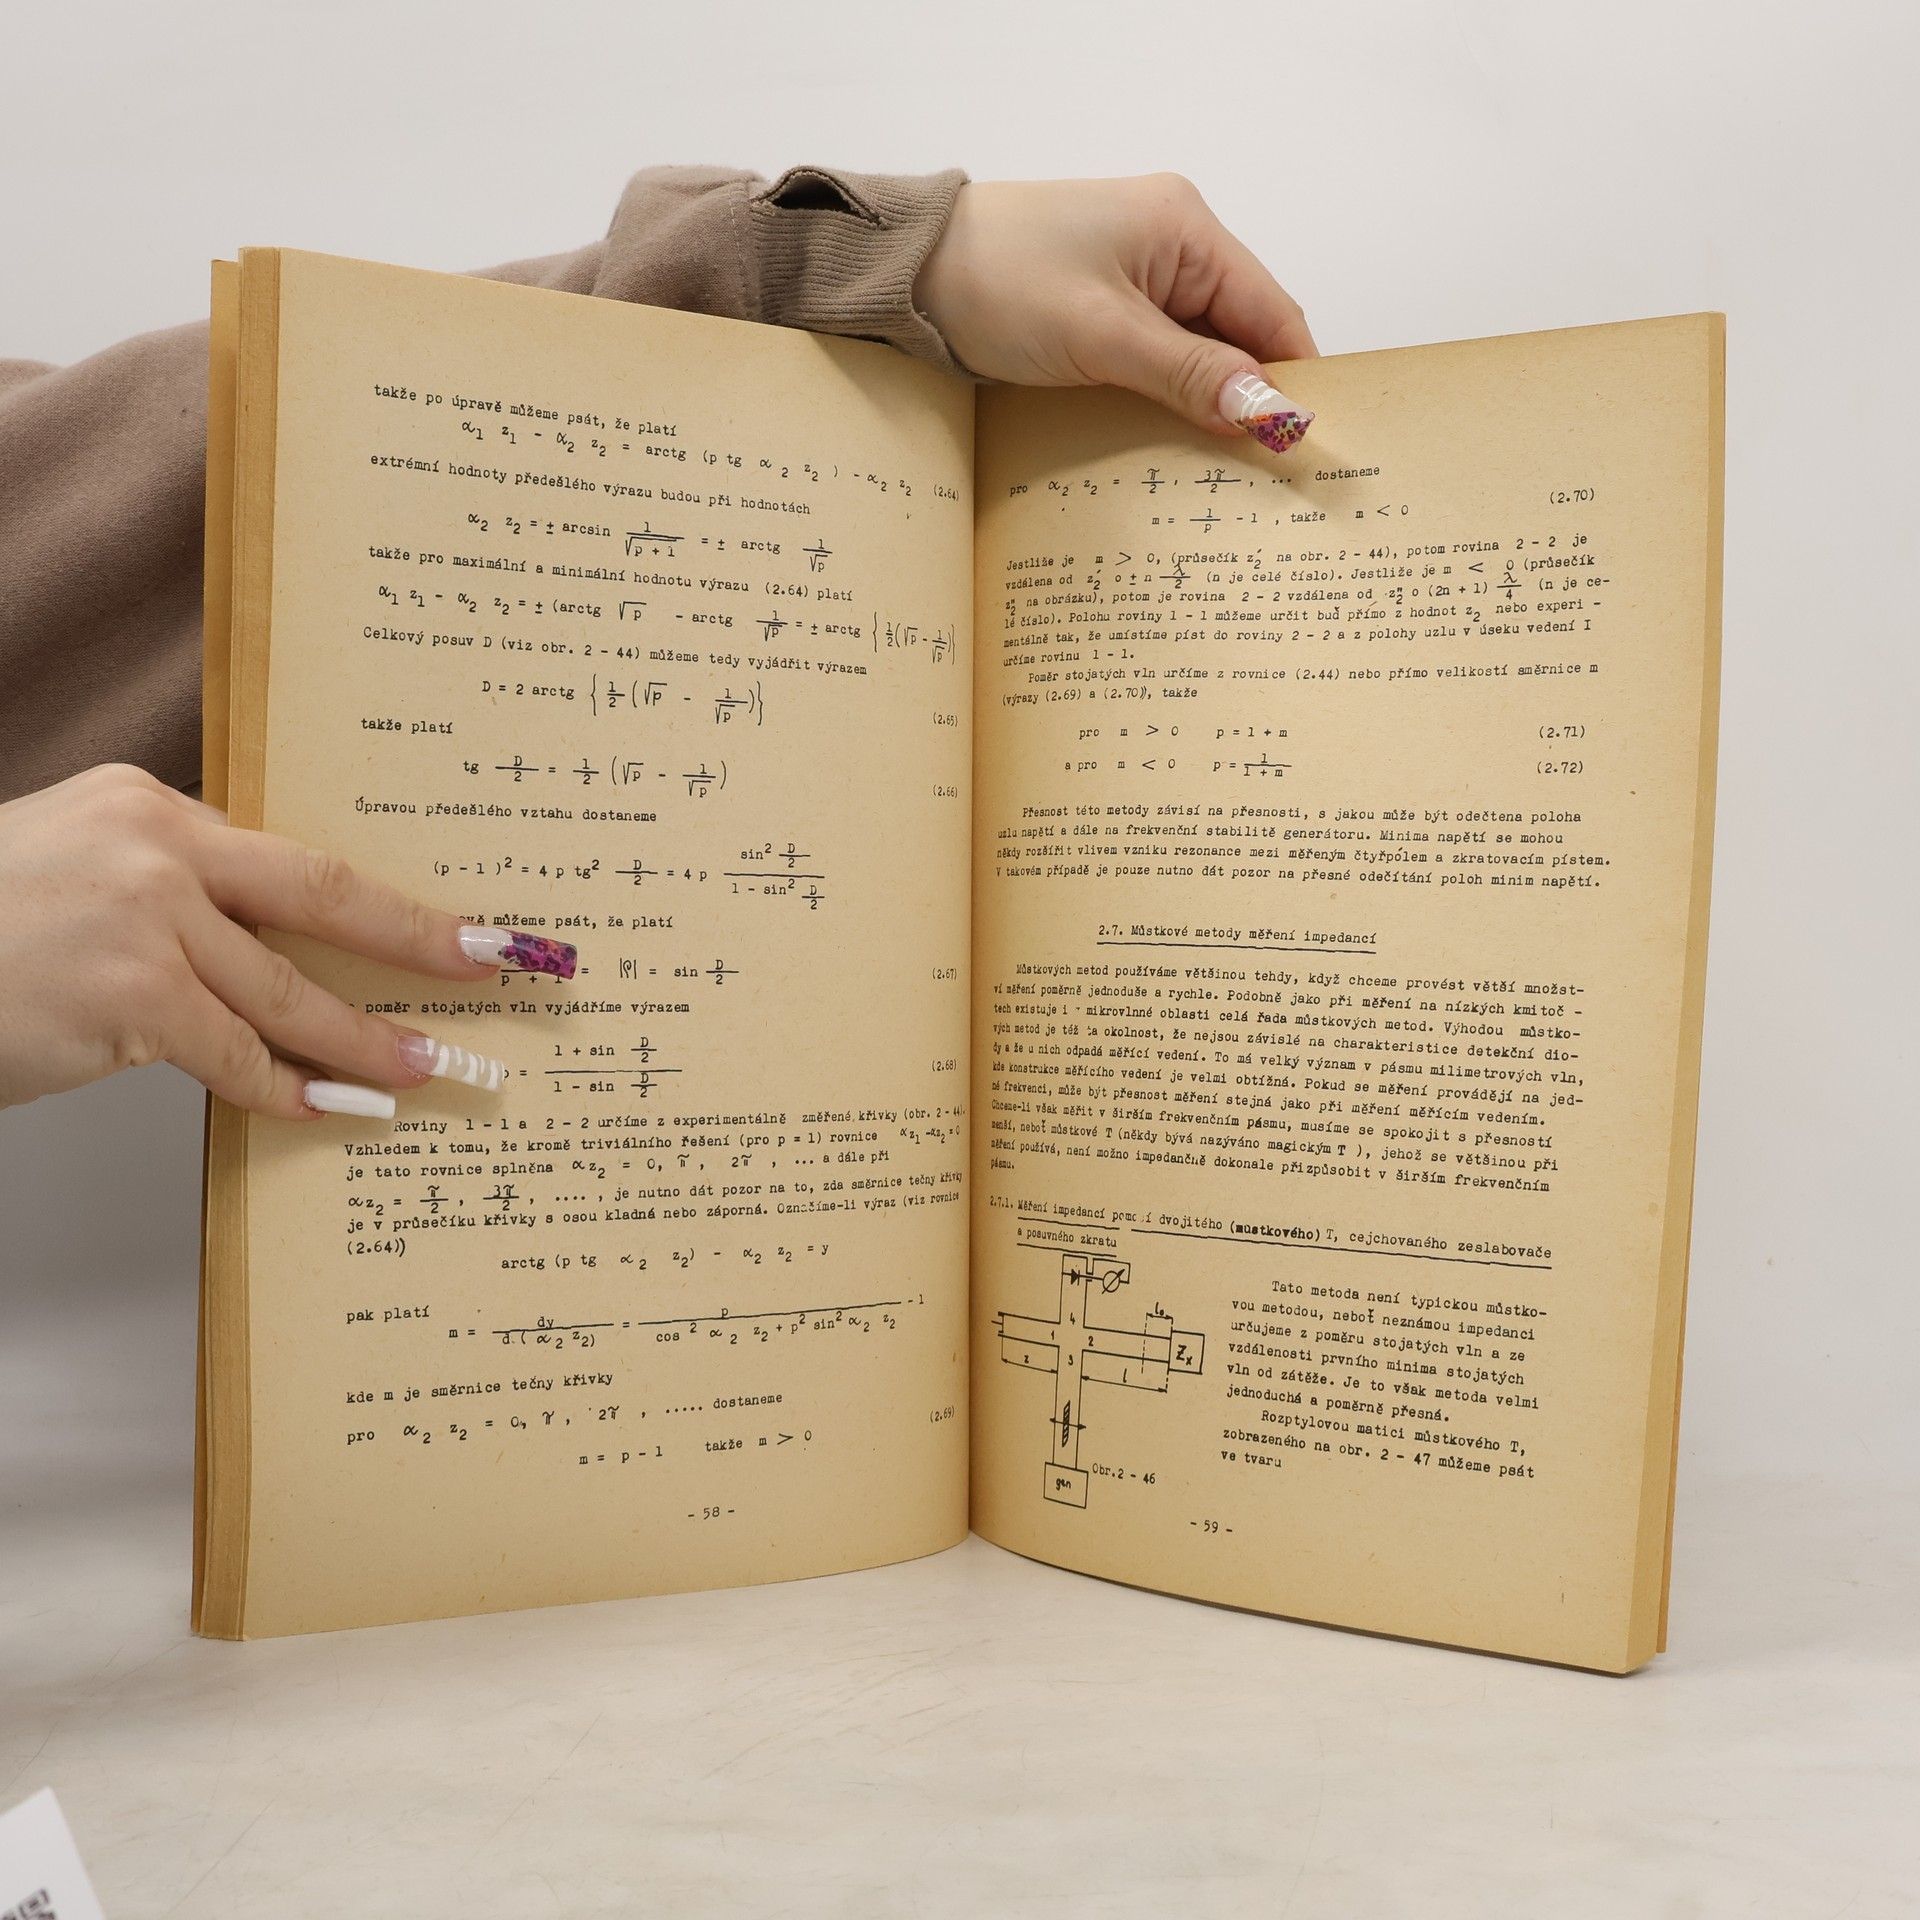 takže po úpravě můžeme psát, že platí
α₁ z₁ - α₂ z₂ = arctg (p tg α₂ z₂) - α₂ z₂ (2.64)
extrémní hodnoty předešlého výrazu budou při hodnotách
α₂ z₂ = ± arcsin 1/√(p + 1) = ± arctg 1/√p
takže pro maximální a minimální hodnotu výrazu (2.64) platí
α₁ z₁ - α₂ z₂ = ± (arctg √p - arctg 1/√p = ± arctg {1/2(√p - 1/√p)}
Celkový posuv D (viz obr. 2 - 44) můžeme tedy vyjádřit výrazem
D = 2 arctg {1/2 (√p - 1/√p)} (2.65)
takže platí
tg D/2 = 1/2 (√p - 1/√p) (2.66)
Úpravou předešlého vztahu dostaneme
(p - 1)² = 4 p tg² D/2 = 4 p sin² D/2 / 1 - sin² D/2
můžeme psát, že platí
p + 1 = |ρ| = sin D/2 (2.67)
poměr stojatých vln vyjádříme výrazem
p = 1 + sin D/2 / 1 - sin D/2 (2.68)
Roviny 1 - 1 a 2 - 2 určíme z experimentálně změřené křivky (obr. 2 - 44).
Vzhledem k tomu, že kromě triviálního řešení (pro p = 1) rovnice αz₁ - αz₂ = 0
je tato rovnice splněna αz₂ = 0, π, 2π, ... a dále při
αz₂ = π/2, 3π/2, ...., je nutno dát pozor na to, zda směrnice tečny křivky
je v průsečíku křivky s osou kladná nebo záporná. Označíme-li výraz (viz rovnice
(2.64))
arctg (p tg α₂ z₂) - α₂ z₂ = y
pak platí
m = dy/d.(α₂ z₂) = p/cos² α₂ z₂ + p² sin² α₂ z₂ - 1
kde m je směrnice tečny křivky
pro α₂ z₂ = 0, π, 2π, ..... dostaneme
m = p - 1 takže m > 0 (2.69)
- 58 -
pro α₂ z₂ = π/2, 3π/2, ... dostaneme
m = 1/p - 1, takže m < 0 (2.70)
Jestliže je m > 0, (průsečík z₂′ na obr. 2 - 44), potom rovina 2 - 2 je
vzdálena od z₂′ o ± n λ/2 (n je celé číslo). Jestliže je m < 0 (průsečík
z₂″ na obrázku), potom je rovina 2 - 2 vzdálena od z₂″ o (2n + 1) λ/4 (n je ce-
lé číslo). Polohu roviny 1 - 1 můžeme určit buď přímo z hodnot z₂ nebo experi -
mentálně tak, že umístíme píst do roviny 2 - 2 a z polohy uzlu v úseku vedení I
určíme rovinu 1 - 1.
Poměr stojatých vln určíme z rovnice (2.44) nebo přímo velikostí směrnice m
(výrazy (2.69) a (2.70)), takže
pro m > 0 p = 1 + m (2.71)
a pro m < 0 p = 1/1 + m (2.72)
Přesnost této metody závisí na přesnosti, s jakou může být odečtena poloha
uzlu napětí a dále na frekvenční stabilitě generátoru. Minima napětí se mohou
někdy rozšířit vlivem vzniku rezonance mezi měřeným čtyřpólem a zkratovacím pístem.
V takovém případě je pouze nutno dát pozor na přesné odečítání poloh minim napětí.
2.7. Můstkové metody měření impedancí
Můstkových metod používáme většinou tehdy, když chceme provést větší množst-
ví měření poměrně jednoduše a rychle. Podobně jako při měření na nízkých kmitoč -
tech existuje i v mikrovlnné oblasti celá řada můstkových metod. Výhodou můstko-
vých metod je též ta okolnost, že nejsou závislé na charakteristice detekční dio-
dy a že u nich odpadá měřící vedení. To má velký význam v pásmu milimetrových vln,
kde konstrukce měřícího vedení je velmi obtížná. Pokud se měření provádějí na jed-
né frekvenci, může být přesnost měření stejná jako při měření měřícím vedením.
Chceme-li však měřit v širším frekvenčním pásmu, musíme se spokojit s přesností
menší, neboť můstkové T (někdy bývá nazýváno magickým T ), jehož se většinou při
měření používá, není možno impedančně dokonale přizpůsobit v širším frekvenčním
pásmu.
2.7.1. Měření impedancí pomocí dvojitého (mustkového) T, cejchovaného zeslabovače
a posuvného zkratu
4
l₀
1
2
Zx
z
3
l
gen
Obr.2 - 46
Tato metoda není typickou můstko-
vou metodou, neboť neznámou impedanci
určujeme z poměru stojatých vln a ze
vzdálenosti prvního minima stojatých
vln od zátěže. Je to však metoda velmi
jednoduchá a poměrně přesná.
Rozptylovou matici můstkového T,
zobrazeného na obr. 2 - 47 můžeme psát
ve tvaru
- 59 -